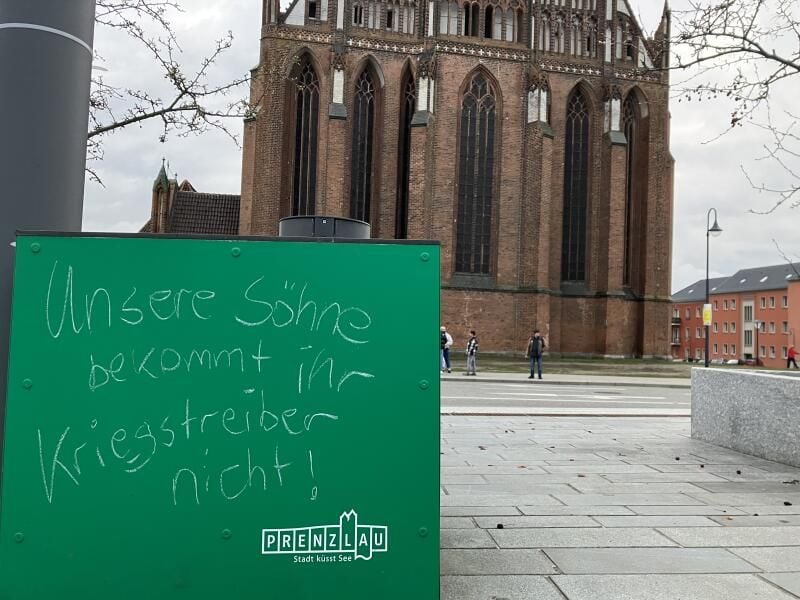 Unsere Söhne
bekommt ihr
Kriegstreiber
nicht!
PRENZLAU
Stadt küsst See